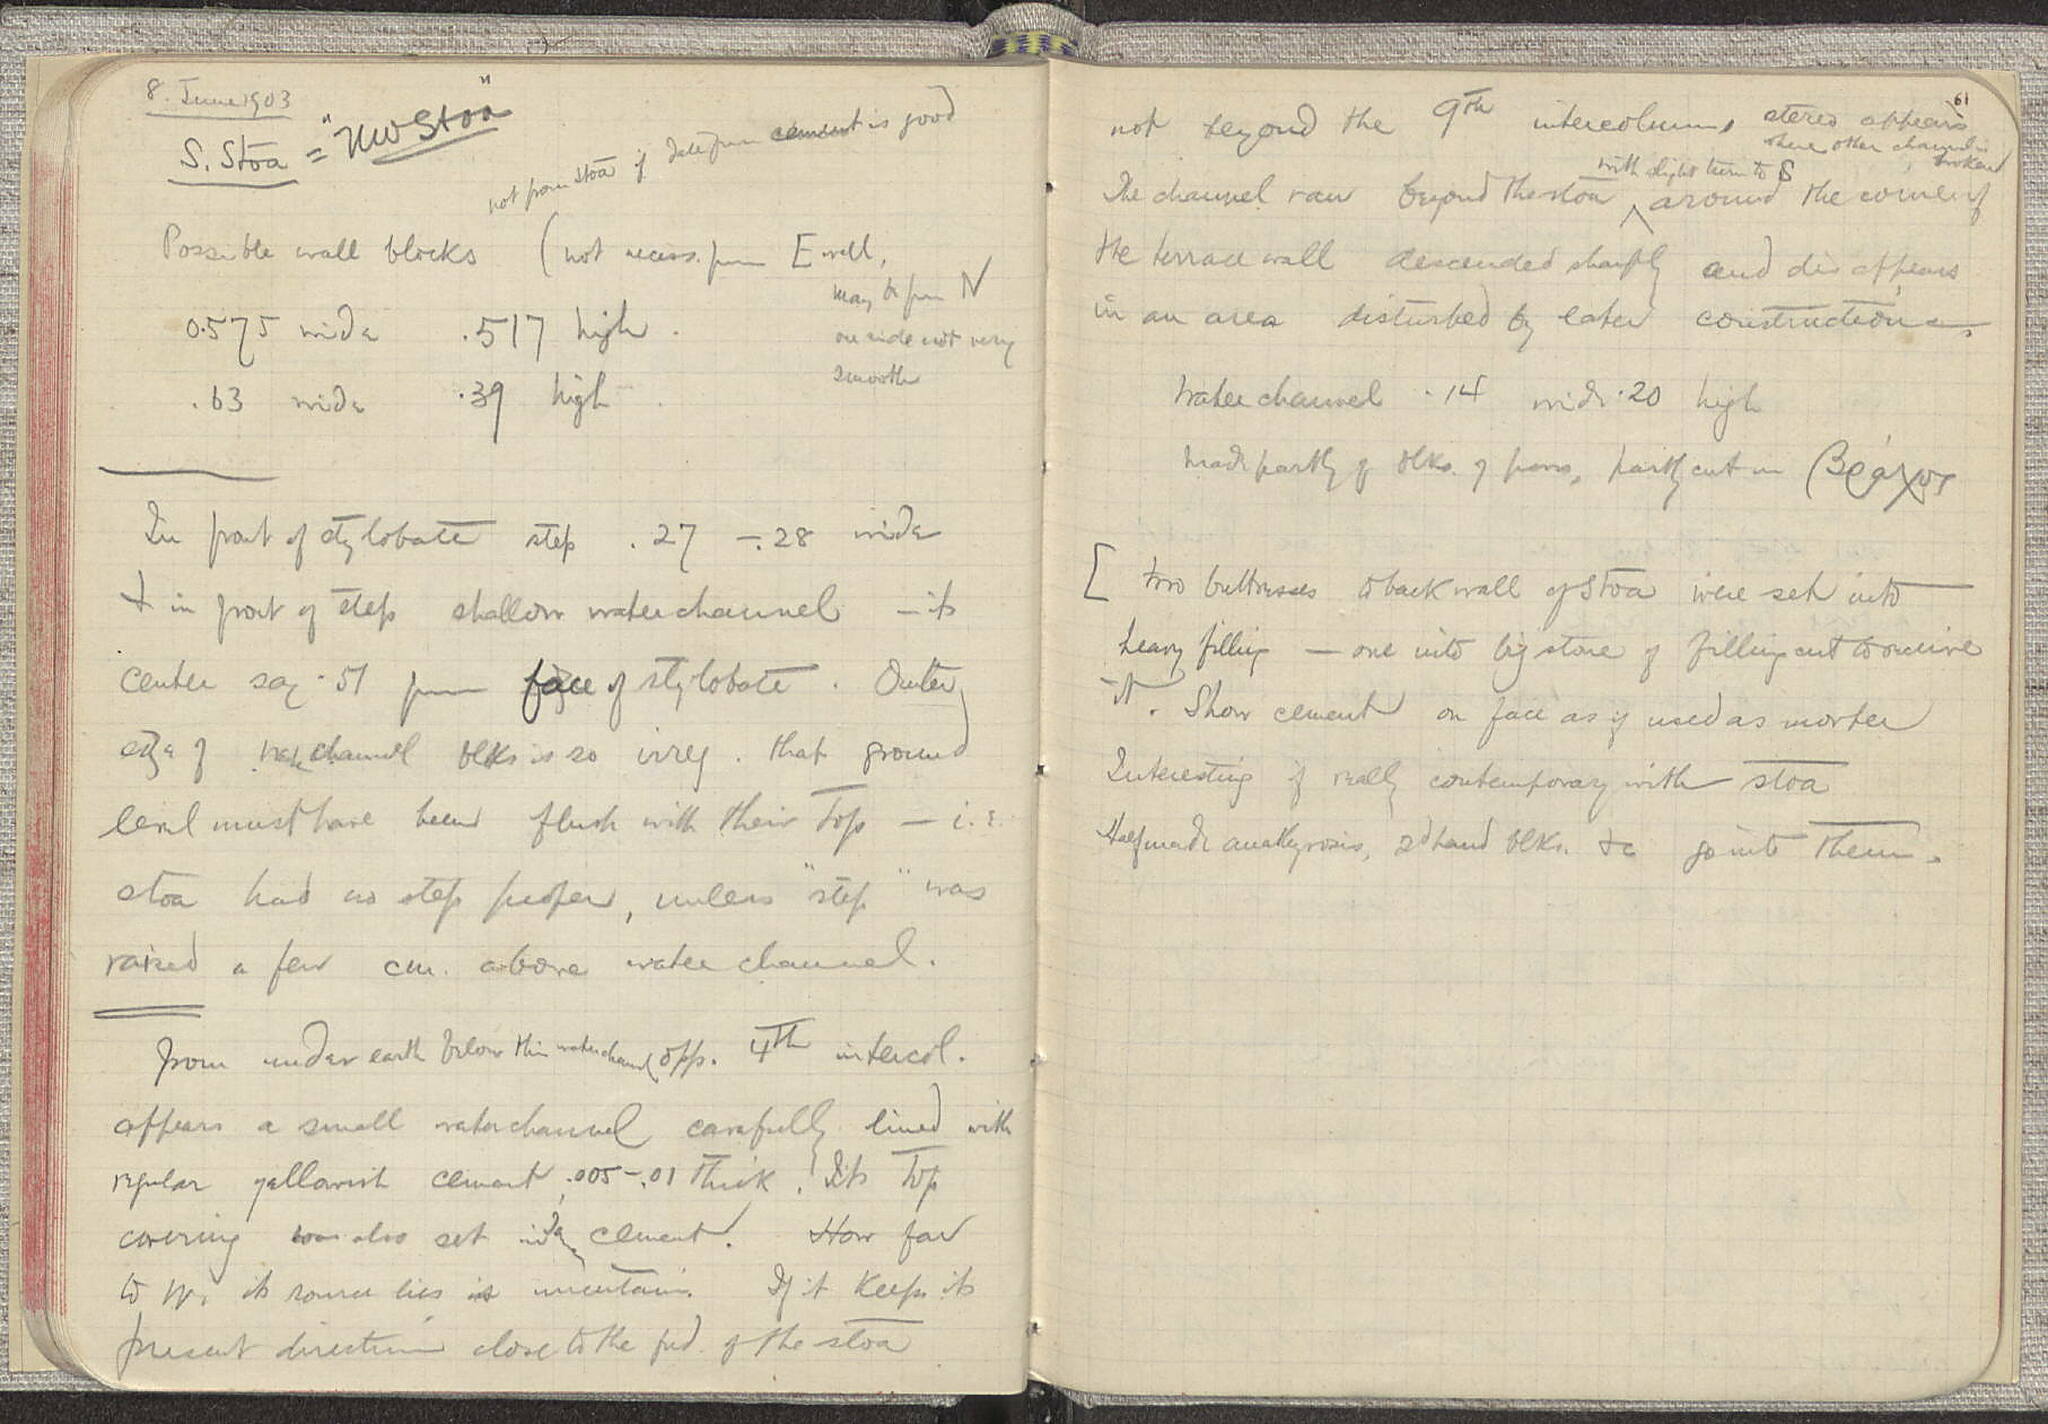 8. June 1903
S. Stoa = "NW Stoa"
not from stoa if from cement is good
Possible wall blocks (not necess. from [E wall,
may be from N
0.575 wide .517 high.
one side not very
smooth
.63 wide .39 high.
In front of stylobate step .27 –.28 wide
+ in front of step shallow waterchannel – its
center say .51 from face of stylobate. Outer
edge of channel blks is so irreg. that ground
level must have been flush with their top – i.e.
stoa had no step proper, unless "step" was
raised a few cm. above water channel.
From under earth below this waterchannel opp. 4th intercol.
appears a small waterchannel carefully lined with
regular yellowish cement, .005–.01 thick. Its top
covering was also set in cement. How far
to W. its source lies is uncertain. If it keeps its
present direction close to the fnd. of the stoa
61
not beyond the 9th intercolumn, appears
where other channel is
broken
with slight turn to S
The channel ran beyond the stoa ^ around the corner of
the terrace wall descended sharply and disappears
in an area disturbed by later constructions.
Water channel .14 wide .20 high
made partly of blks. of poros, partly cut in βράχος
[ two buttresses to back wall of Stoa were set into
heavy filling – one into big stone of filling cut to receive
it. Show cement on face as if used as mortar
Interesting if really contemporary with stoa
Half made anathyrosis, 2d hand blks. &c go into them.